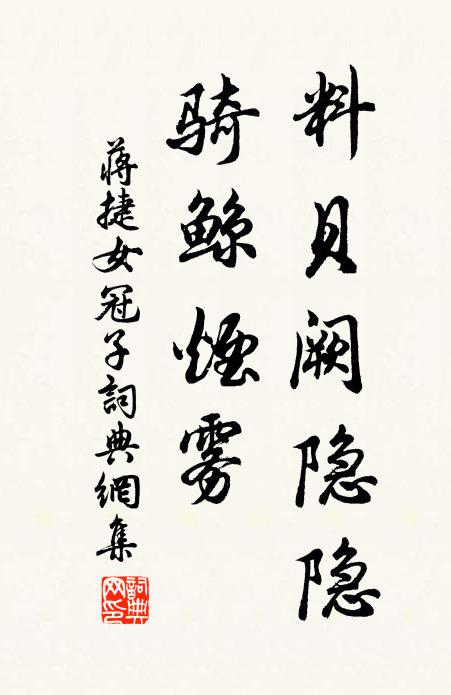 料贝阙隐隐
骑鲸烟雾
蒋捷女冠子詞典網集
詞典网印